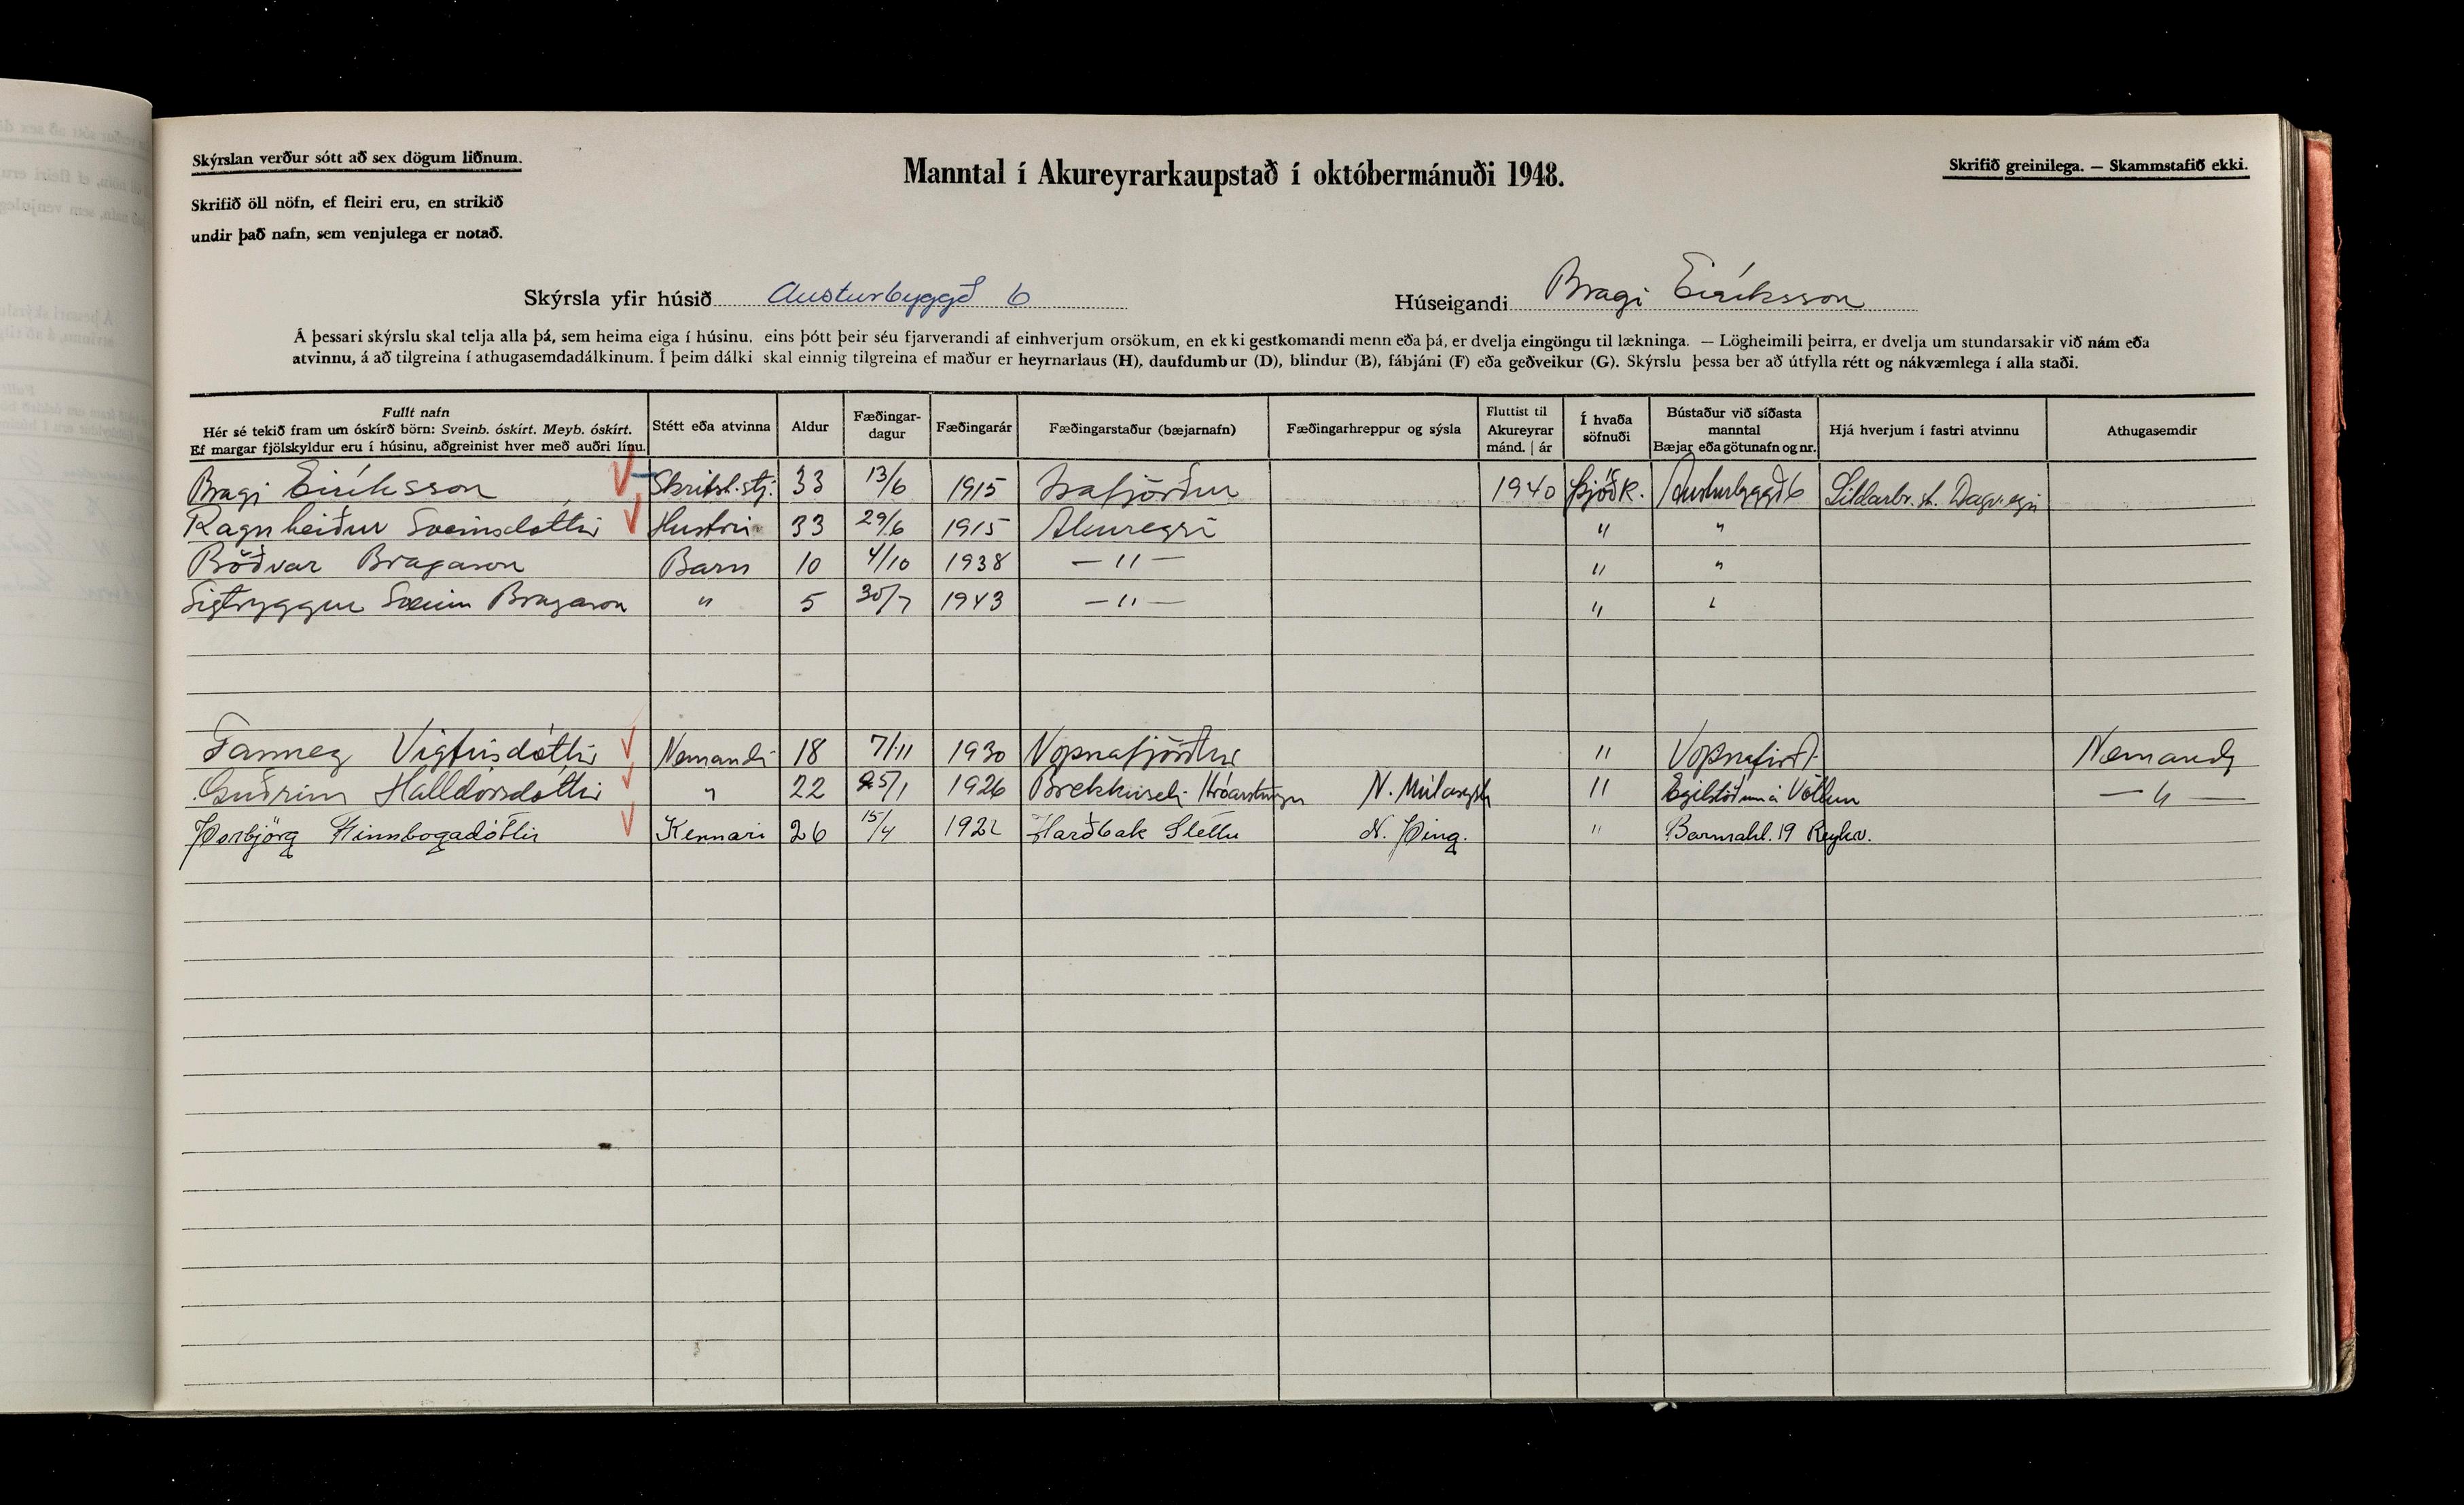 Skýrslan verður sótt að sex dögum liðnum.
Skrifið öll nöfn, ef fleiri eru, en strikið
undir það nafn, sem venjulega er notað.
Manntal í Akureyrarkaupstað í októbermánuði 1948.
Skrifið greinilega. — Skammstafið ekki.
Skýrsla yfir húsið Austurbyggð 6
Húseigandi Bragi Eiríksson
Á þessari skýrslu skal telja alla þá, sem heima eiga í húsinu, eins þótt þeir séu fjarverandi af einhverjum orsökum, en ekki gestkomandi menn eða þá, er dvelja eingöngu til lækninga. — Lögheimili þeirra, er dvelja um stundarsakir við nám eða
atvinnu, á að tilgreina í athugasemdadálkinum. Í þeim dálki skal einnig tilgreina ef maður er heyrnarlaus (H), daufdumbur (D), blindur (B), fábjáni (F) eða geðveikur (G). Skýrslu þessa ber að útfylla rétt og nákvæmlega í alla staði.
Fullt nafn
Hér sé tekið fram um óskírð börn: Sveinb. óskírt. Meyb. óskírt.
Ef margar fjölskyldur eru í húsinu, aðgreinist hver með auðri línu.
Stétt eða atvinna
Aldur
Fæðingar-
dagur
Fæðingarár
Fæðingarstaður (bæjarnafn)
Fæðingarhreppur og sýsla
Fluttist til
Akureyrar
mánd. | ár
Í hvaða
söfnuði
Bústaður við síðasta
manntal
Bæjar eða götunafn og nr.
Hjá hverjum í fastri atvinnu
Athugasemdir
Bragi Eiríksson Skrifst.stj. 33 13/6 1915 Ísafjörður 1940 Þjóðk. Austurbyggð 6 Síldarbr. st. Dagv.eyri
Ragnheiður Sveinsdóttir Hústrú 33 29/6 1915 Akureyri " "
Böðvar Bragason Barn 10 4/10 1938 — " — " "
Sigtryggur Sveinn Bragason " 5 30/7 1943 — " — " "
Fanney Vigfúsdóttir Nemandi 18 7/11 1930 Vopnafjörður " Vopnafirði Nemandi
Guðrún Halldórsdóttir " 22 25/1 1926 Brekkuseli Hróarstungu N. Múlasýsla " Egilstöðum á Völlum — " —
Þorbjörg Finnbogadóttir Kennari 26 15/4 1922 Harðbak Sléttu N. Þing. " Barmahl. 19 Reykv.